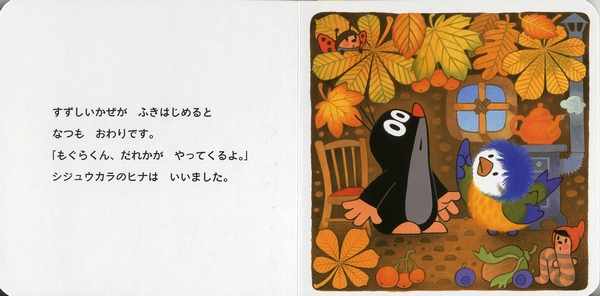 すずしいかぜが　ふきはじめると
なつも　おわりです。
「もぐらくん、だれかが　やってくるよ。」
シジュウカラのヒナは　いいました。